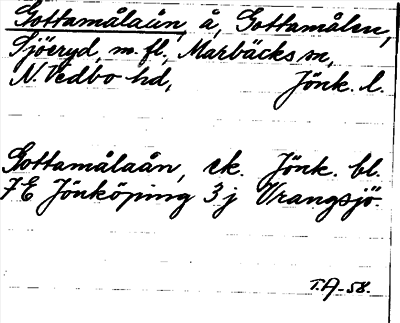 Gottamålaån, å, Gottamålen,
Sjöeryd, m. fl., Marbäcks sn,
N. Vedbo hd, Jönk. l.
Gottamålaån, ek. Jönk. bl.
7E Jönköping 3j Vrangsjö
T.A-58.